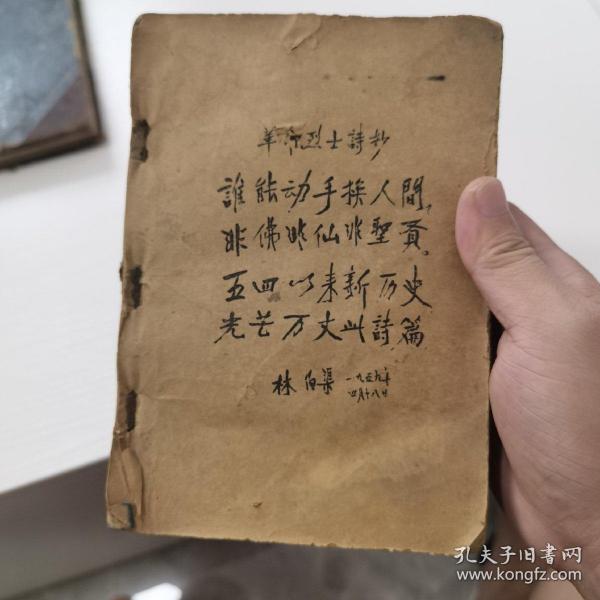 革命烈士詩抄
誰能动手換人間，
非佛非仙非聖賢。
五四以来新历史
光芒万丈此詩篇
林伯渠
一九五九年
四月十八日
孔夫子旧书网
www.kongfz.com